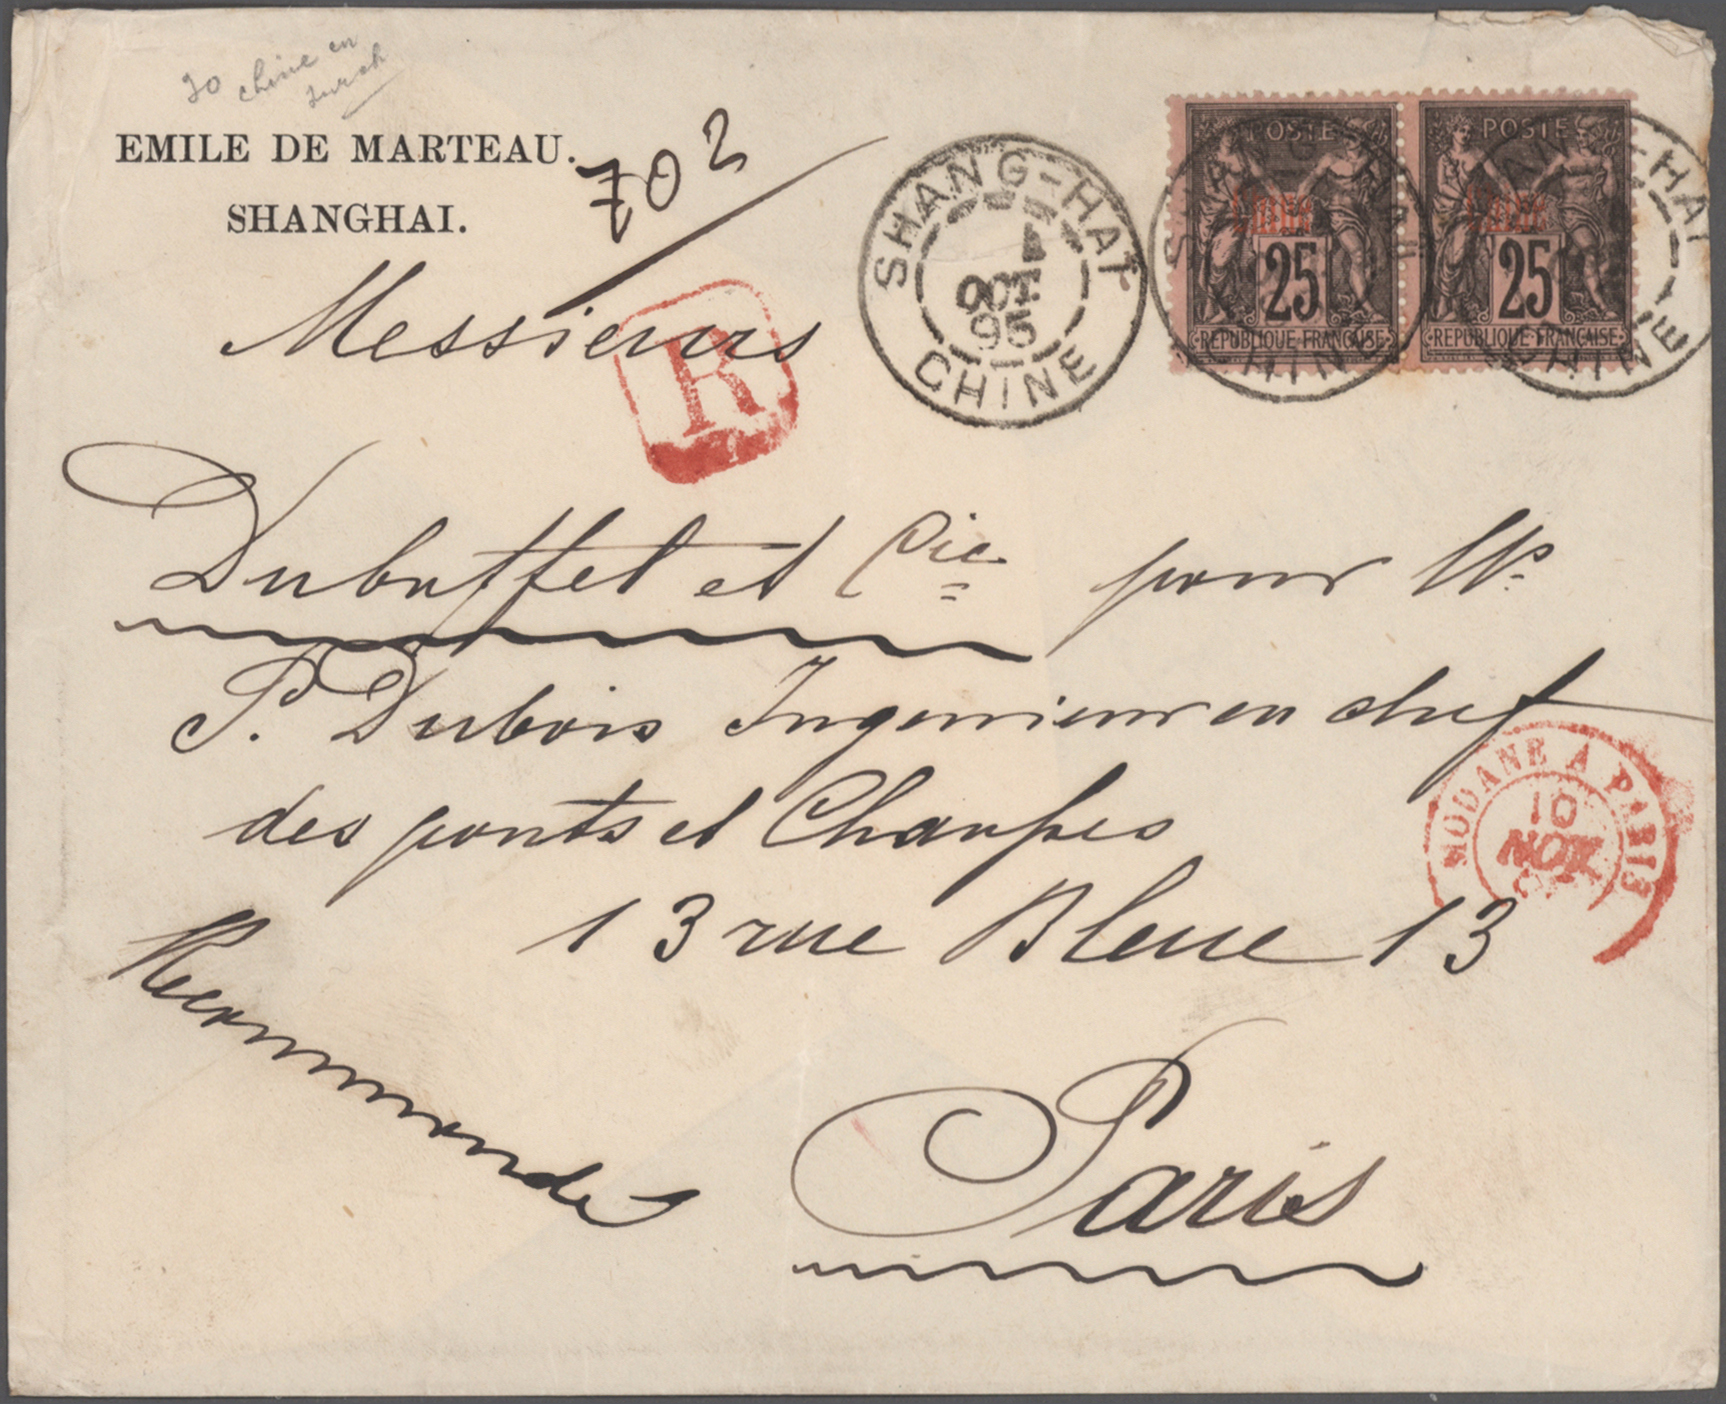 chine en
EMILE DE MARTEAU.
SHANGHAI.
702
Messieurs
R
SHANG-HAI
OCT.
95
CHINE
POSTE
Chine
25
REPUBLIQUE FRANÇAISE
POSTE
Chine
25
REPUBLIQUE FRANÇAISE
SHANG-HAI
CHINE
SHANG-HAI
CHINE
Dubuffet et Cie pour Mr
P. Dubois Ingenieur en chef
des ponts et Chaussées
13 rue Bleue 13
MODANE A PARIS
10
NOV
Recommandée
Paris